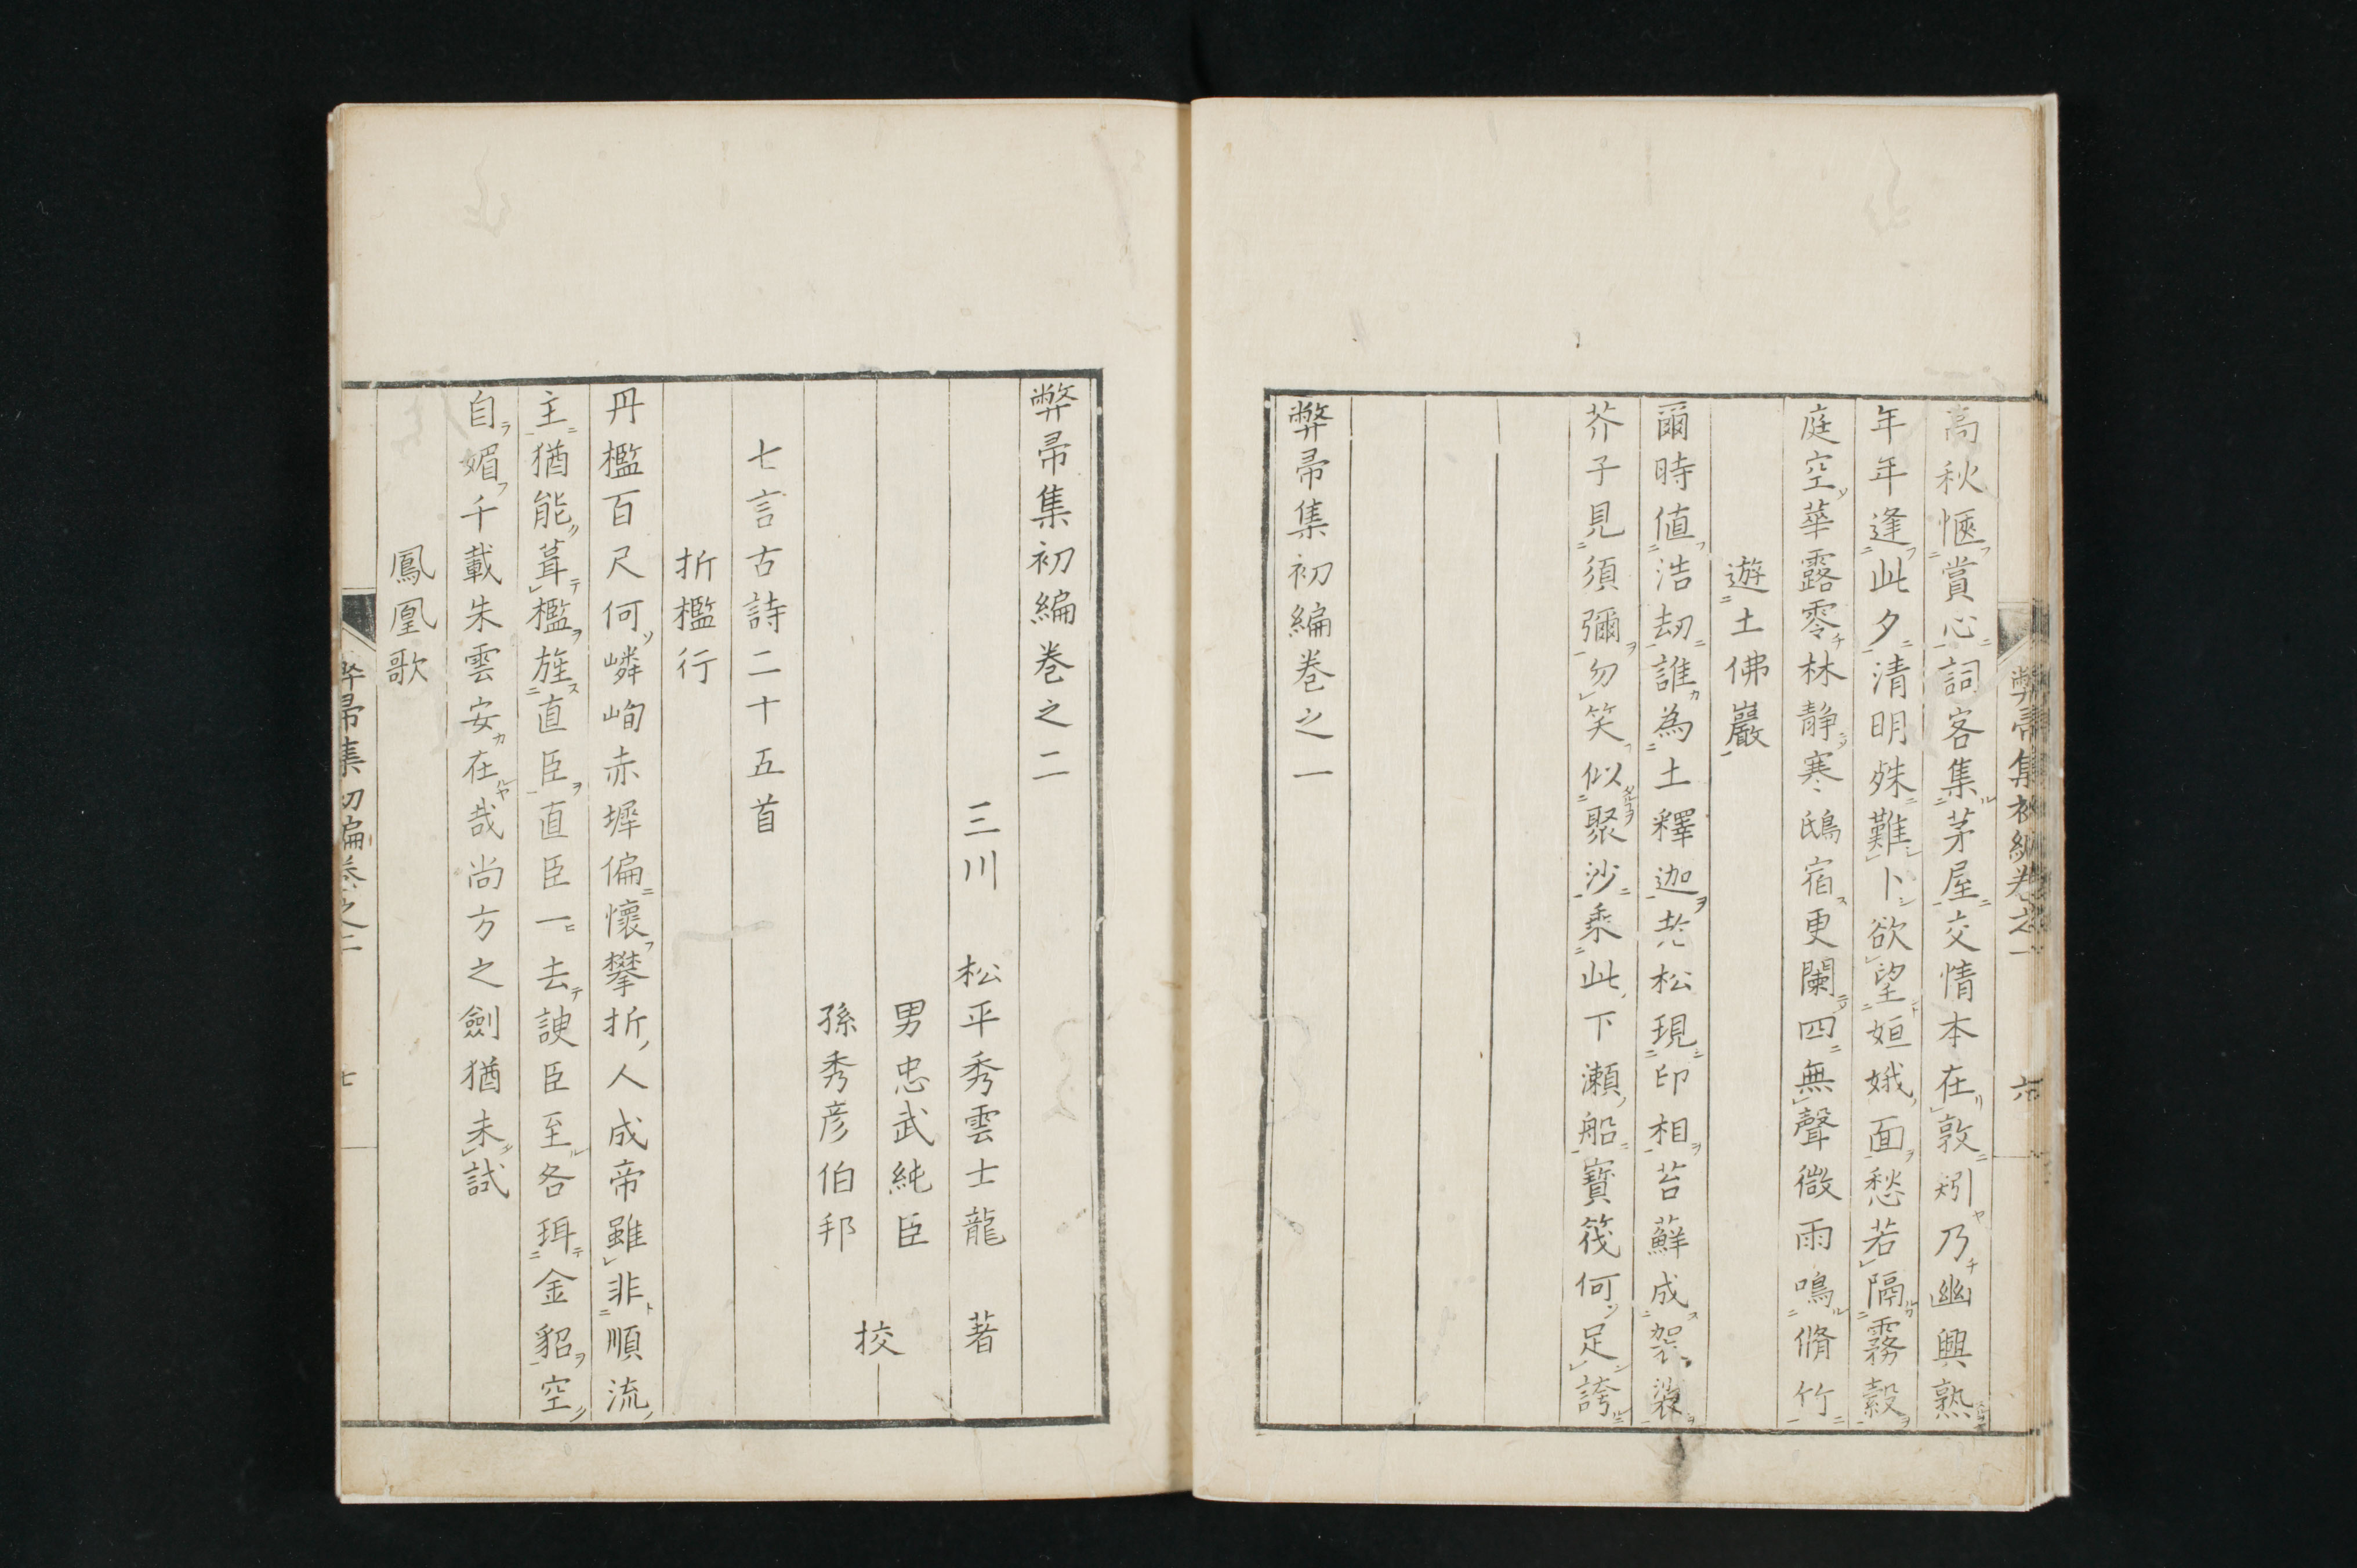 弊帚集初編卷之一 六
高秋愜賞心詞客集茅屋交情本在敦矧乃幽興熟
年年逢此夕清明殊難卜欲望姮娥面愁若隔霧縠
庭空華露零林静寒鴟宿更闌四無聲微雨鳴脩竹
遊土佛巖
爾時値浩劫誰為土釋迦老松現印相苔蘚成袈裟
芥子見須彌勿笑似聚沙乘此下瀬船寳筏何足誇
弊帚集初編卷之一
弊帚集初編巻之二
三川 松平秀雲士龍 著
男忠武純臣
孫秀彦伯邦
挍
七言古詩二十五首
折檻行
丹檻百尺何嶙峋赤墀偏懷攀折人成帝雖非順流
主猶能葺檻旌直臣直臣一去諛臣至各珥金貂空
自媚千載朱雲安在哉尚方之劍猶未試
鳳凰歌
弊帚集初編卷之二 七